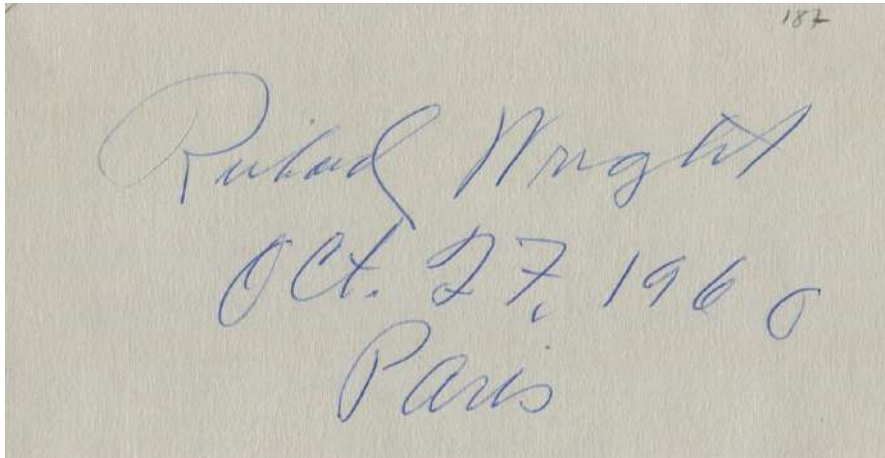 187
Richard Wright
Oct. 27, 1960
Paris